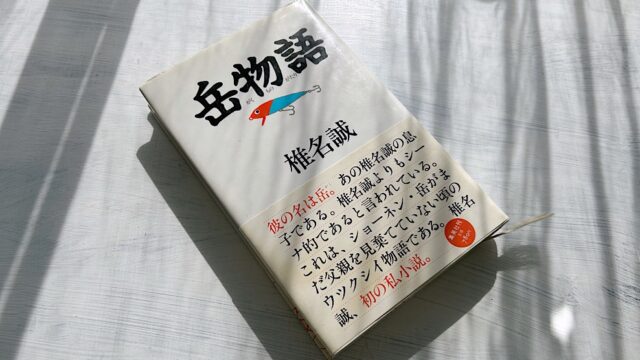 岳物語
椎名誠
彼の名は岳。あの椎名誠の息
子である。椎名誠よりもシー
ナ的であると言われている。
これは、ショーネン・岳がま
だ父親を見棄てていない頃の
ウツクシイ物語である。椎名
誠、初の私小説。